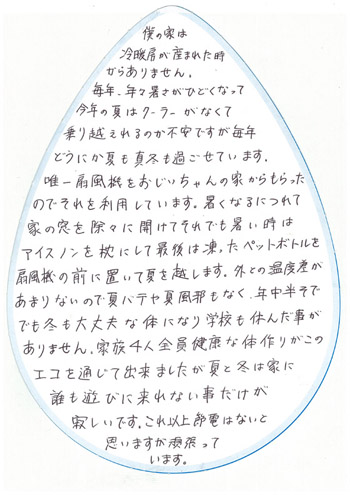 僕の家は
冷暖房が産まれた時
からありません。
毎年、年々暑さがひどくなって
今年の夏はクーラーがなくて
乗り越えれるのか不安ですが毎年
どうにか夏も真冬も過ごせています。
唯一扇風機をおじいちゃんの家からもらった
のでそれを利用しています。暑くなるにつれて
家の窓を除々に開けてそれでも暑い時は
アイスノンを枕にして最後は凍ったペットボトルを
扇風機の前に置いて夏を越します。外との温度差が
あまりないので夏バテや夏風邪もなく、年中半そで
でも冬も大丈夫な体になり学校も休んだ事が
ありません。家族4人全員健康な体作りがこの
エコを通じて出来ましたが夏と冬は家に
誰も遊びに来れない事だけが
寂しいです。これ以上節電はないと
思いますが頑張って
います。